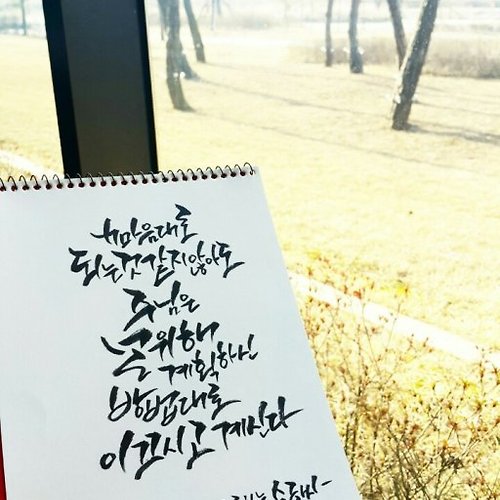 내마음대로
되는것 같지않아도
주님은
날위해
계획하신
방법대로
이끄시고 계신다